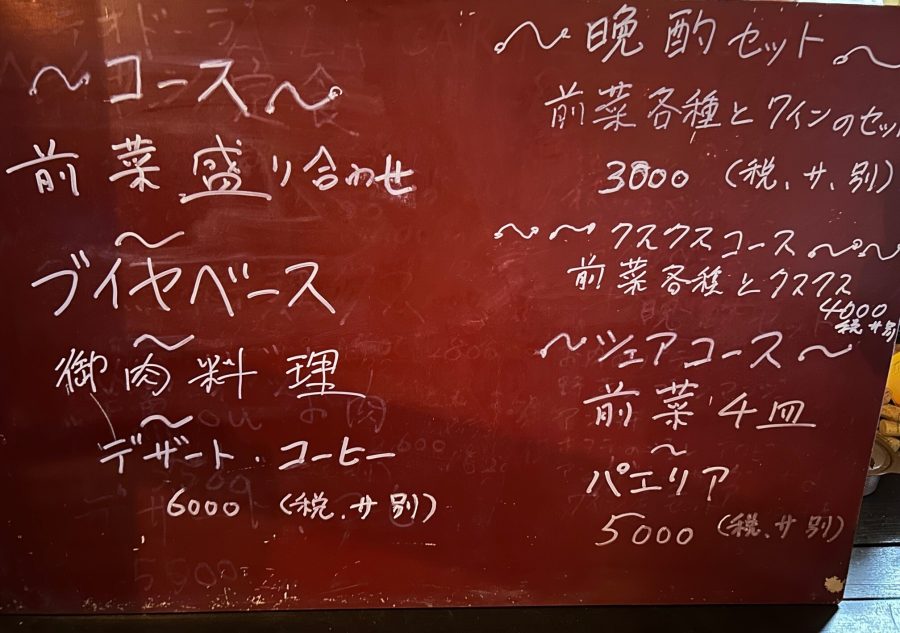 ～コース～
前菜盛り合わせ
～
ブイヤベース
～
御肉料理
～
デザート・コーヒー
6000 (税、サ別)
～晩酌セット～
前菜各種とワインのセット
3000 (税、サ、別)
～～クスクスコース～～
前菜各種とクスクス
4000
税サ別
～シェアコース～
前菜4皿
～
パエリア
5000 (税、サ別)
5500